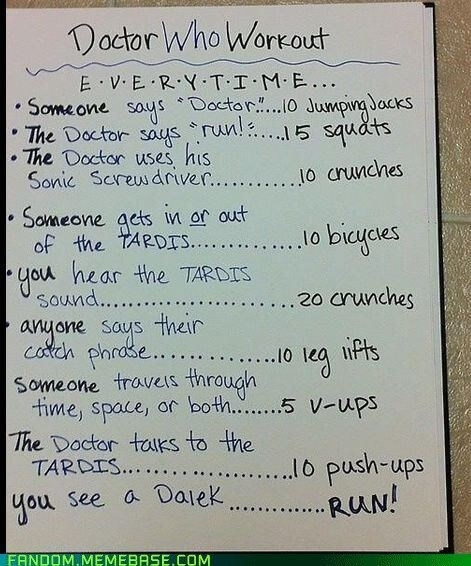 Doctor Who Workout
E·V·E·R·Y·T·I·M·E...
• Someone says "Doctor."...10 Jumping Jacks
• The Doctor says "run!"....15 squats
• The Doctor uses his
Sonic Screwdriver............10 crunches
• Someone gets in or out
of the TARDIS..............10 bicycles
• you hear the TARDIS
sound........................20 crunches
• anyone says their
catch phrase..............10 leg lifts
Someone travels through
time, space, or both........5 v-ups
The Doctor talks to the
TARDIS.....................10 push-ups
you see a Dalek.............RUN!
FANDOM.MEMEBASE.COM